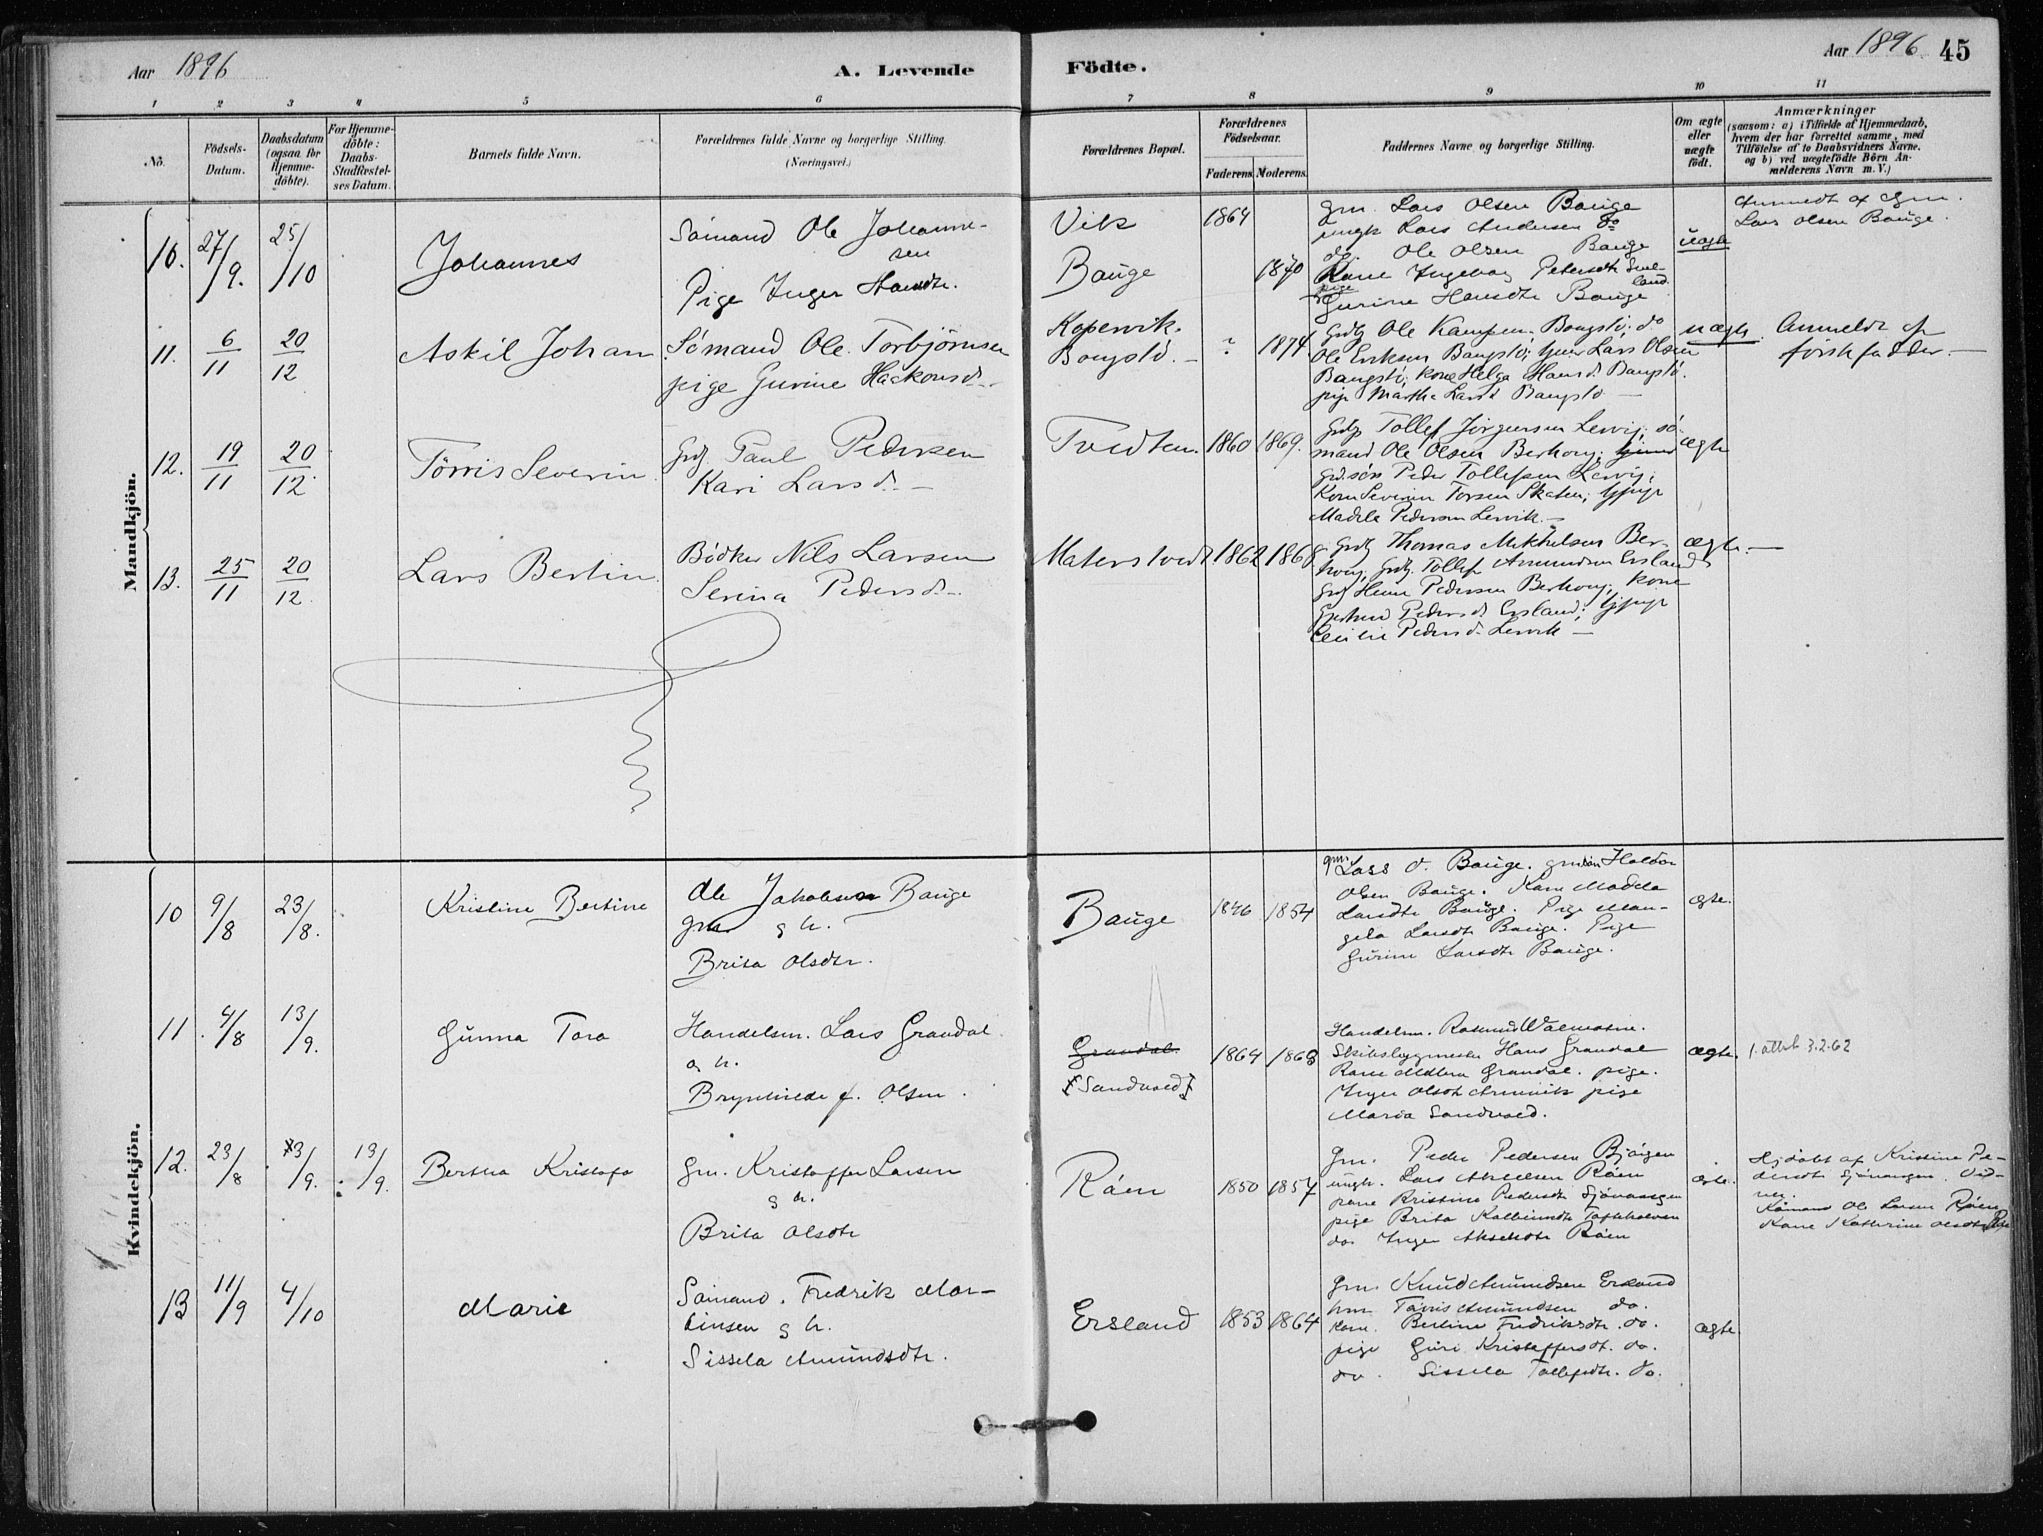 Aar 1896
A. Levende Födte.
Aar 1896 45
1 2 3 4 5 6 7 8 9 10 11
No.
Födsels-Datum.
Daabsdatum (ogsaa for Hjemme-döbte).
For Hjemme-döbte: Daabs-Stadfæstel-ses Datum.
Barnets fulde Navn.
Forældrenes fulde Navne og borgerlige Stilling. (Næringsvei.)
Forældrenes Bopæl.
Forældrenes Födselsaar.
Faderens. Moderens.
Faddernes Navne og borgerlige Stilling.
Om ægte eller uægte födt.
Anmærkninger
(saasom: a) i Tilfælde af Hjemmedaab,
hvem der har forrettet samme, med
Tilföielse af to Daabsvidners Navne,
og b) ved uægtefödte Börn An-
melderens Navn m. V.)
Mandkjön.
10. 27/9. 25/10 Johannes
Sömand Ole Johanne-
sen
Pige Inger Hansdtr.
Vik 1864
Bauge 1870
gm. Lars Olsen Bauge
ungk Lars Andersen do
do. Ole Olsen Bauge
Kone Ingeborg Petersdtr
land.
pige
Gurine Hansdtr Bauge
uægte
Anmeldt af Gm.
Lars Olsen Bauge.
11. 6/11 20/12 Askil Johan
Sömand Ole Torbjörnsen
pige Gurine Hackonsd.
Kopervik.
? 1874
Grdb Ole Bangstö; do
Ole Eriksen Bangstö; Lars Olsen
Bangstö; kone Helga Hansd. Bangstö.
pige Martha Larsd Bangstö
uægte.
Anmeldt af
förste fadder.
12. 19/11 20/12. Törris Severin
Grdb Paul Pedersen
Kari Larsd.
Tvedten. 1860 1869.
Grdb Tollef Jörgensen Lervig; sö-
mand Ole Olsen Berhoug;
grd.sön Peder Tollefsen Lervig;
Kone Severine Skaten;
Madele Pedersen Lervik.
ægte
13. 25/11 20/12. Lars Bertin.
Bödker Nils Larsen
Serina Pedersd.
Materstvedt 1862 1868
Grdb Thomas Mikkelsen Ber-
houg, Grdb. Tollef Amundsen Ersland
Pedersen Berhoug; kone
Pedersd Ersland;
Cecilie Pedersd. Lervik
ægte.
Kvindekjön.
10 9/8 23/8. Kristine Bertine
Ole Jakobsen Bauge
gm. og h.
Brita Olsdtr.
Bauge 1846 1854
gm. Lars O. Bauge. gmsön Haldor
Olsen Bauge. Kone Madela
Larsdtr Bauge. Pige Man-
gela Larsdtr Bauge. Pige
Gurine Larsdtr Bauge.
ægte.
11 4/8 13/9. Gunna Tora
Handelsm. Lars Grandal
og h.
Brynhilde f. Olsen.
Grandal.
[Sandvold] 1864 1868
Handelsm. Rasmus Valmestre.
Skibsbygmester Hans Grandal
Kone Grandal. pige.
Inger Olsdt pige
Maria Sandvold.
ægte.
1. attest 3.2.62
12. 23/8 13/9. 13/9. Bertha Kristofa
Gm. Kristoffer Larsen
og h.
Brita Olsdtr
Röen 1850 1857
Gm. Peder Pedersen
ungk. Lars Akselsen Röen
kone Kristine Pedersdtr Sjövangen
pige Brita
do. Inger Akselsdtr Röen
ægte.
Hjdöbt af Kristine Pe-
dersdt Sjövangen. Vid-
ner.
Sömand Ole Larsen Röen
Kone Kathrine Olsdtr
13 11/9 4/10 Marie
Sömand. Fredrik Mar-
tinsen og h.
Sissela Amundsdtr.
Ersland 1853 1864
Gm. Knud Amundsen Ersland
hm Törris Amundsen do.
kone. Bertine Fredriksdtr. do.
pige Guri Kristoffersdt. do.
do. Sissela Tollefsdtr. do.
ægte.